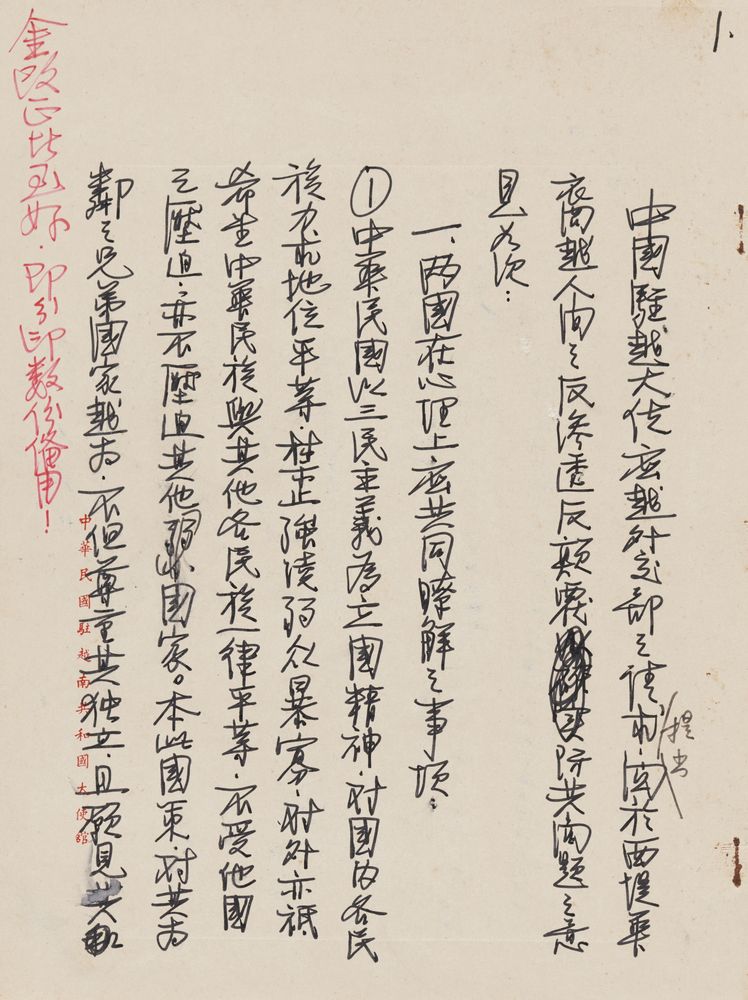 1.
中國駐越大使應越外交部之請求,關於西堤華
提出
裔越人間之反滲透反顛覆防共問題之意
見如次:
一、兩國在心理上應共同瞭解之事項:
①中華民國以三民主義為立國精神,對國內各民
族力求地位平等,杜止強凌弱眾暴寡,對外亦祗
希望中華民族與其他各民族一律平等,不受他國
之壓迫,亦不壓迫其他弱小國家。本此國策,對共為
鄰之兄弟國家越南,不但尊重其獨立,且願見其
中華民國駐越南共和國大使館
改正 好,即 印數份備用!